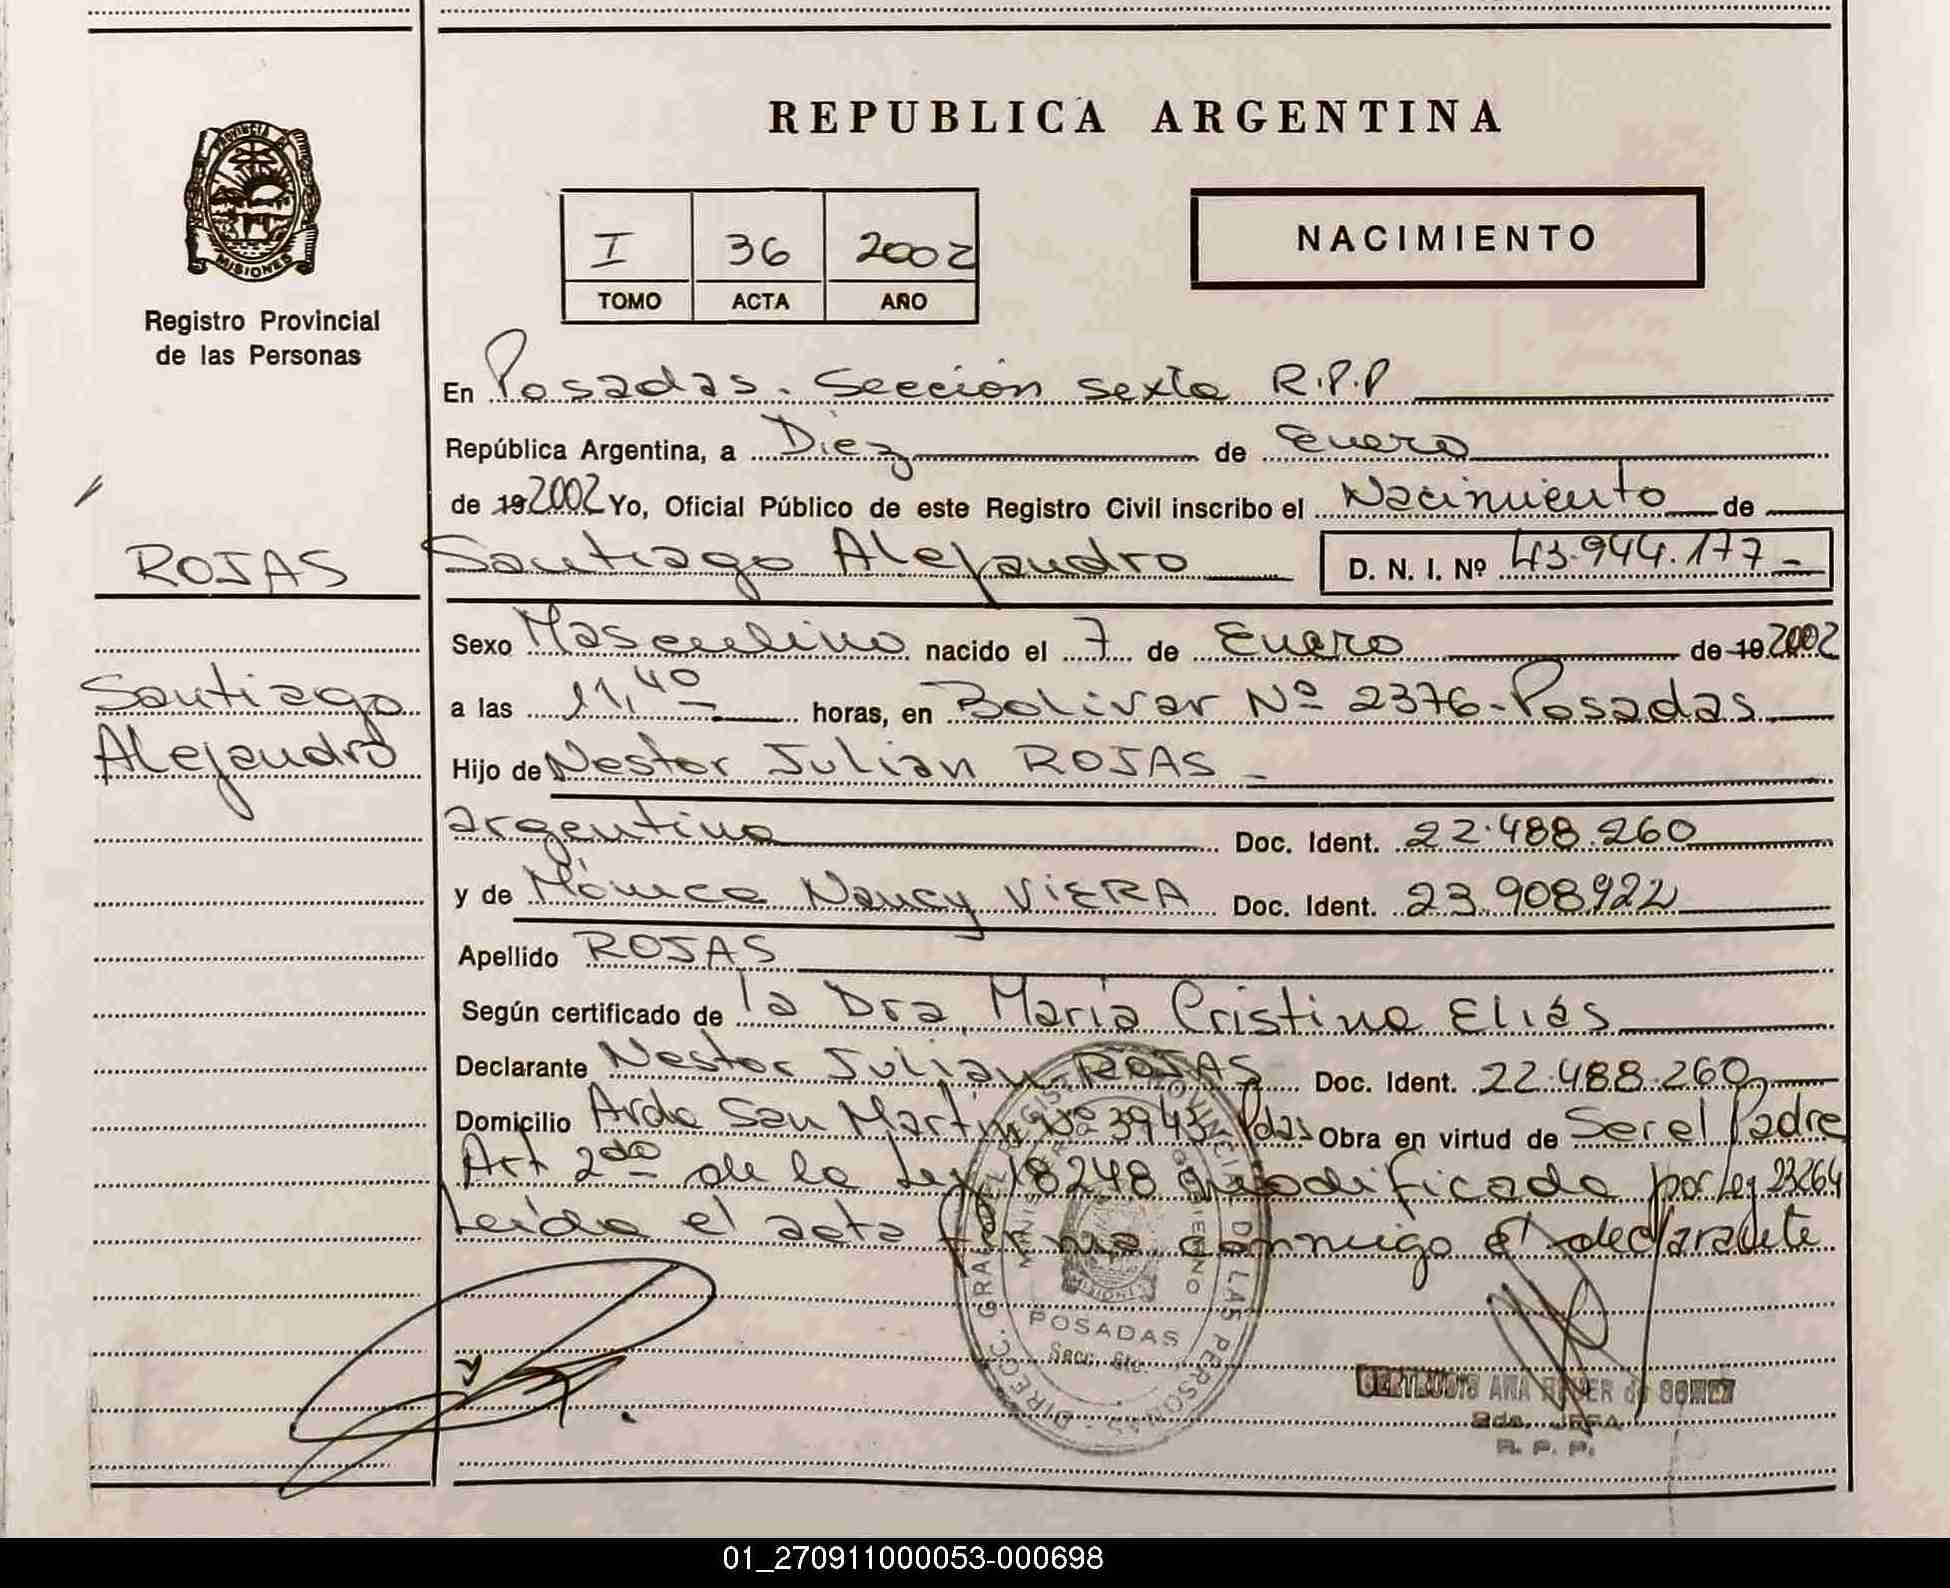 REPUBLICA ARGENTINA
PROVINCIA DE
MISIONES
Registro Provincial
de las Personas
I 36 2002
TOMO ACTA AÑO
NACIMIENTO
En Posadas. Sección sexta R.P.P
República Argentina, a Diez de Enero
de 19 2002 Yo, Oficial Público de este Registro Civil inscribo el Nacimiento de
ROJAS
Santiago Alejandro D. N. I. Nº 43.944.177-
Sexo Masculino nacido el 7 de Enero de 19 2002
Santiago
a las 11,40 horas, en Bolivar Nº 2376-Posadas
Alejandro
Hijo de Nestor Julian ROJAS -
argentino Doc. Ident. 22.488.260
y de Mónica Nancy VIERA Doc. Ident. 23.908922
Apellido ROJAS
Según certificado de la Dra. María Cristina Eliás
Declarante Nestor Julian ROJAS Doc. Ident. 22.488.260
Domicilio Avda San Martin Nº 3943 Pdas Obra en virtud de Ser el Padre
Art 2do de la Ley 18248 modificada por Ley 23264
Leída el acta firma conmigo el declarante
DIRECC. GRAL. DEL REGISTRO PROVINCIAL DE LAS PERSONAS
MINISTERIO GOBIERNO
MISIONES
POSADAS
Secc. 6ta.
GERTRUDIS ANA de GOMEZ
2da. JEFA
R. P. P.
01_270911000053-000698